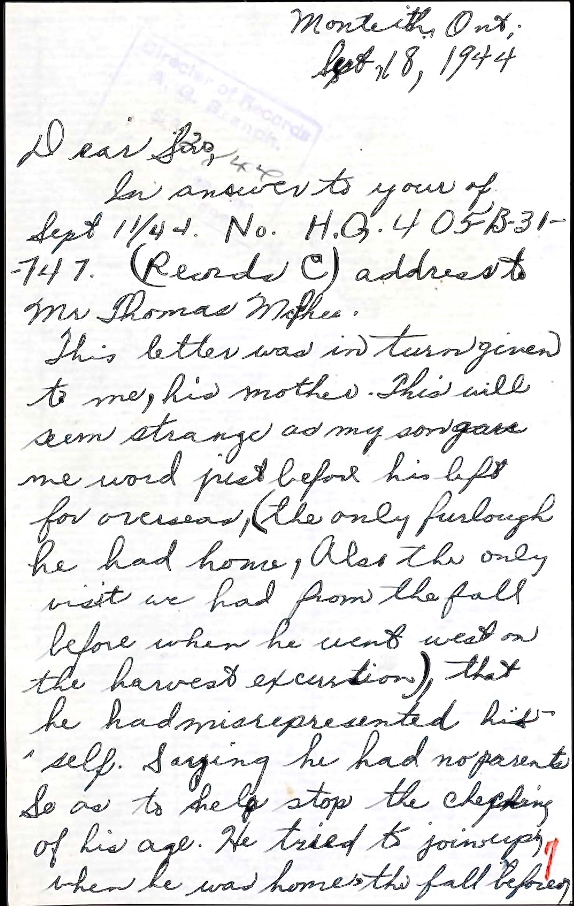 Monteith, Ont;
Sept 18, 1944
Director of Records
A. G. Branch.
Dear Sir,
In answer to your of
Sept 11/44. No. H.Q. 405-B-31-
-747. (Records C) address to
Mr Thomas McPhee.
This letter was in turn given
to me, his mother. This will
seem strange as my son gave
me word just before his left
for overseas, (the only furlough
he had home, Also the only
visit we had from the fall
before when he went west on
the harvest excurstion), that
he had misrepresented his-
self. Saying he had no parents
So as to help stop the checking
of his age. He tried to join up,
when he was home the fall before,
7